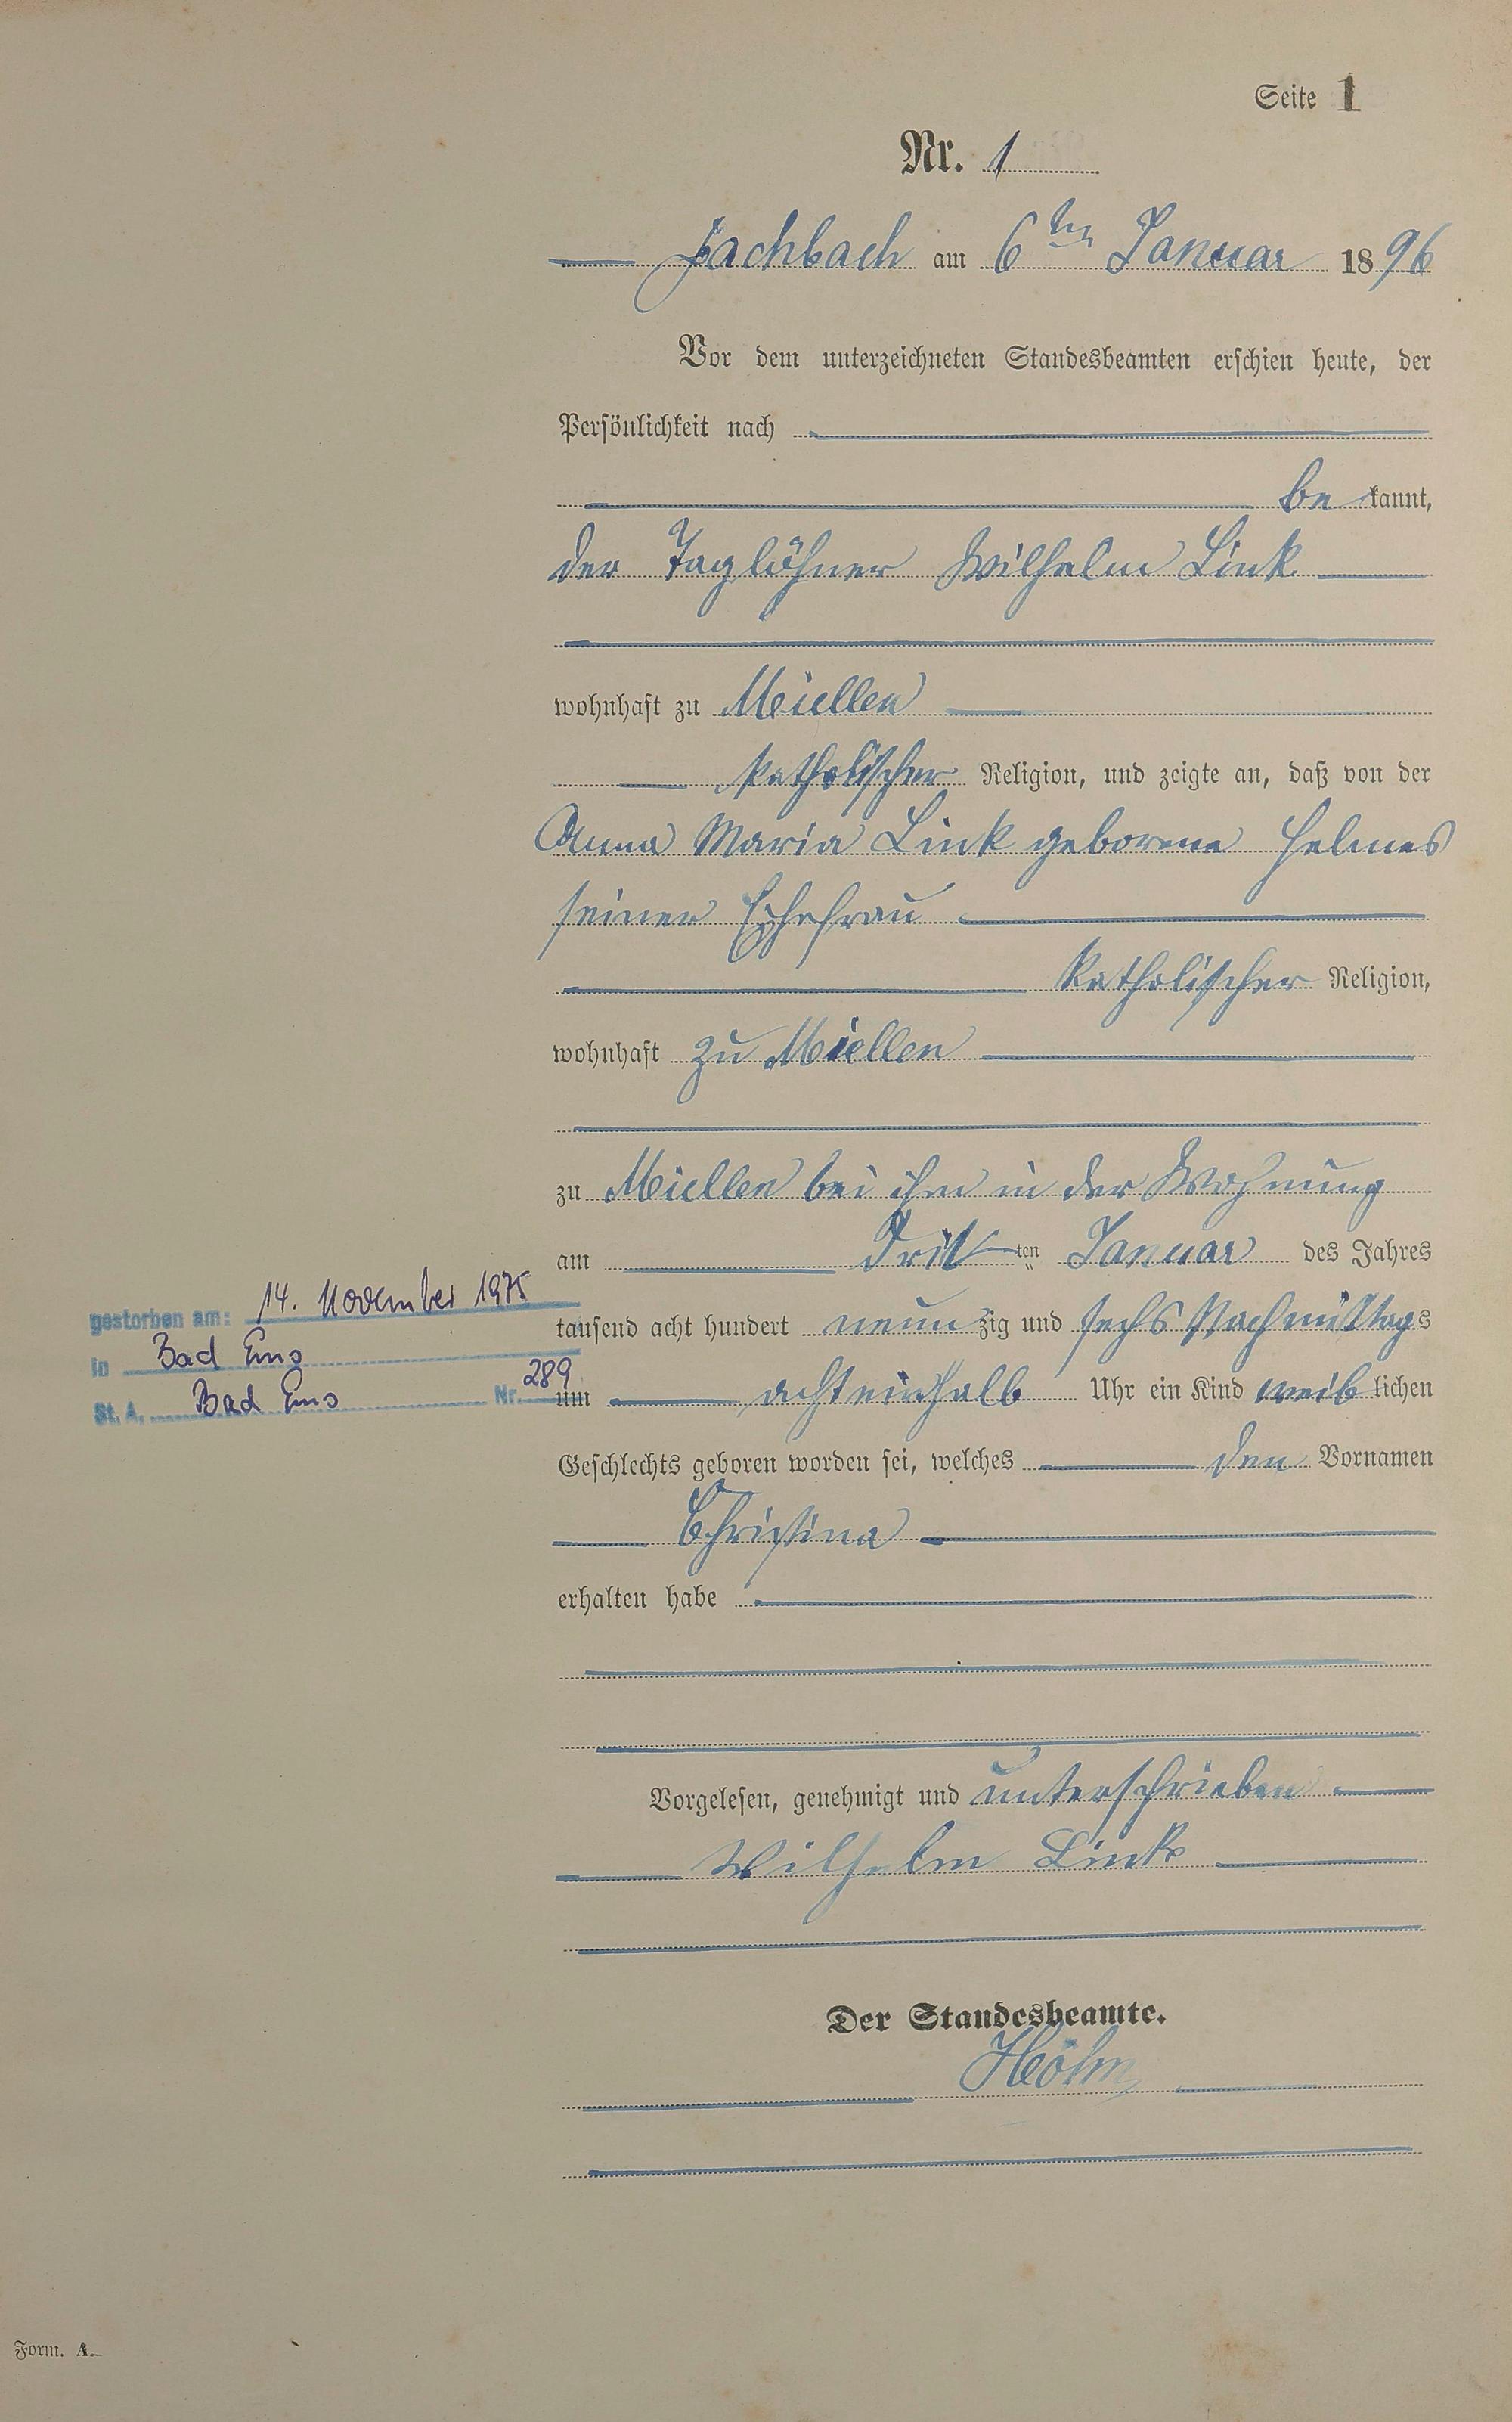 Seite 1
Nr. 1
Fachbach am 6ten Januar 1896
Vor dem unterzeichneten Standesbeamten erschien heute, der
Persönlichkeit nach
be kannt,
der Taglöhner Wilhelm Link
wohnhaft zu Miellen
katholischer Religion, und zeigte an, daß von der
Anna Maria Link geborene Helmes
seiner Ehefrau
katholischer Religion,
wohnhaft zu Miellen
zu Miellen bei ihm in der Wohnung
am Dritten Januar des Jahres
tausend acht hundert neunzig und sechs Nachmittags
um acht einhalb Uhr ein Kind weiblichen
Geschlechts geboren worden sei, welches den Vornamen
Christina
erhalten habe
Vorgelesen, genehmigt und unterschrieben
Wilhelm Link
Der Standesbeamte.
gestorben am: 14. November 1975
in Bad Ems
St. A. Bad Ems Nr. 289
Form. A.